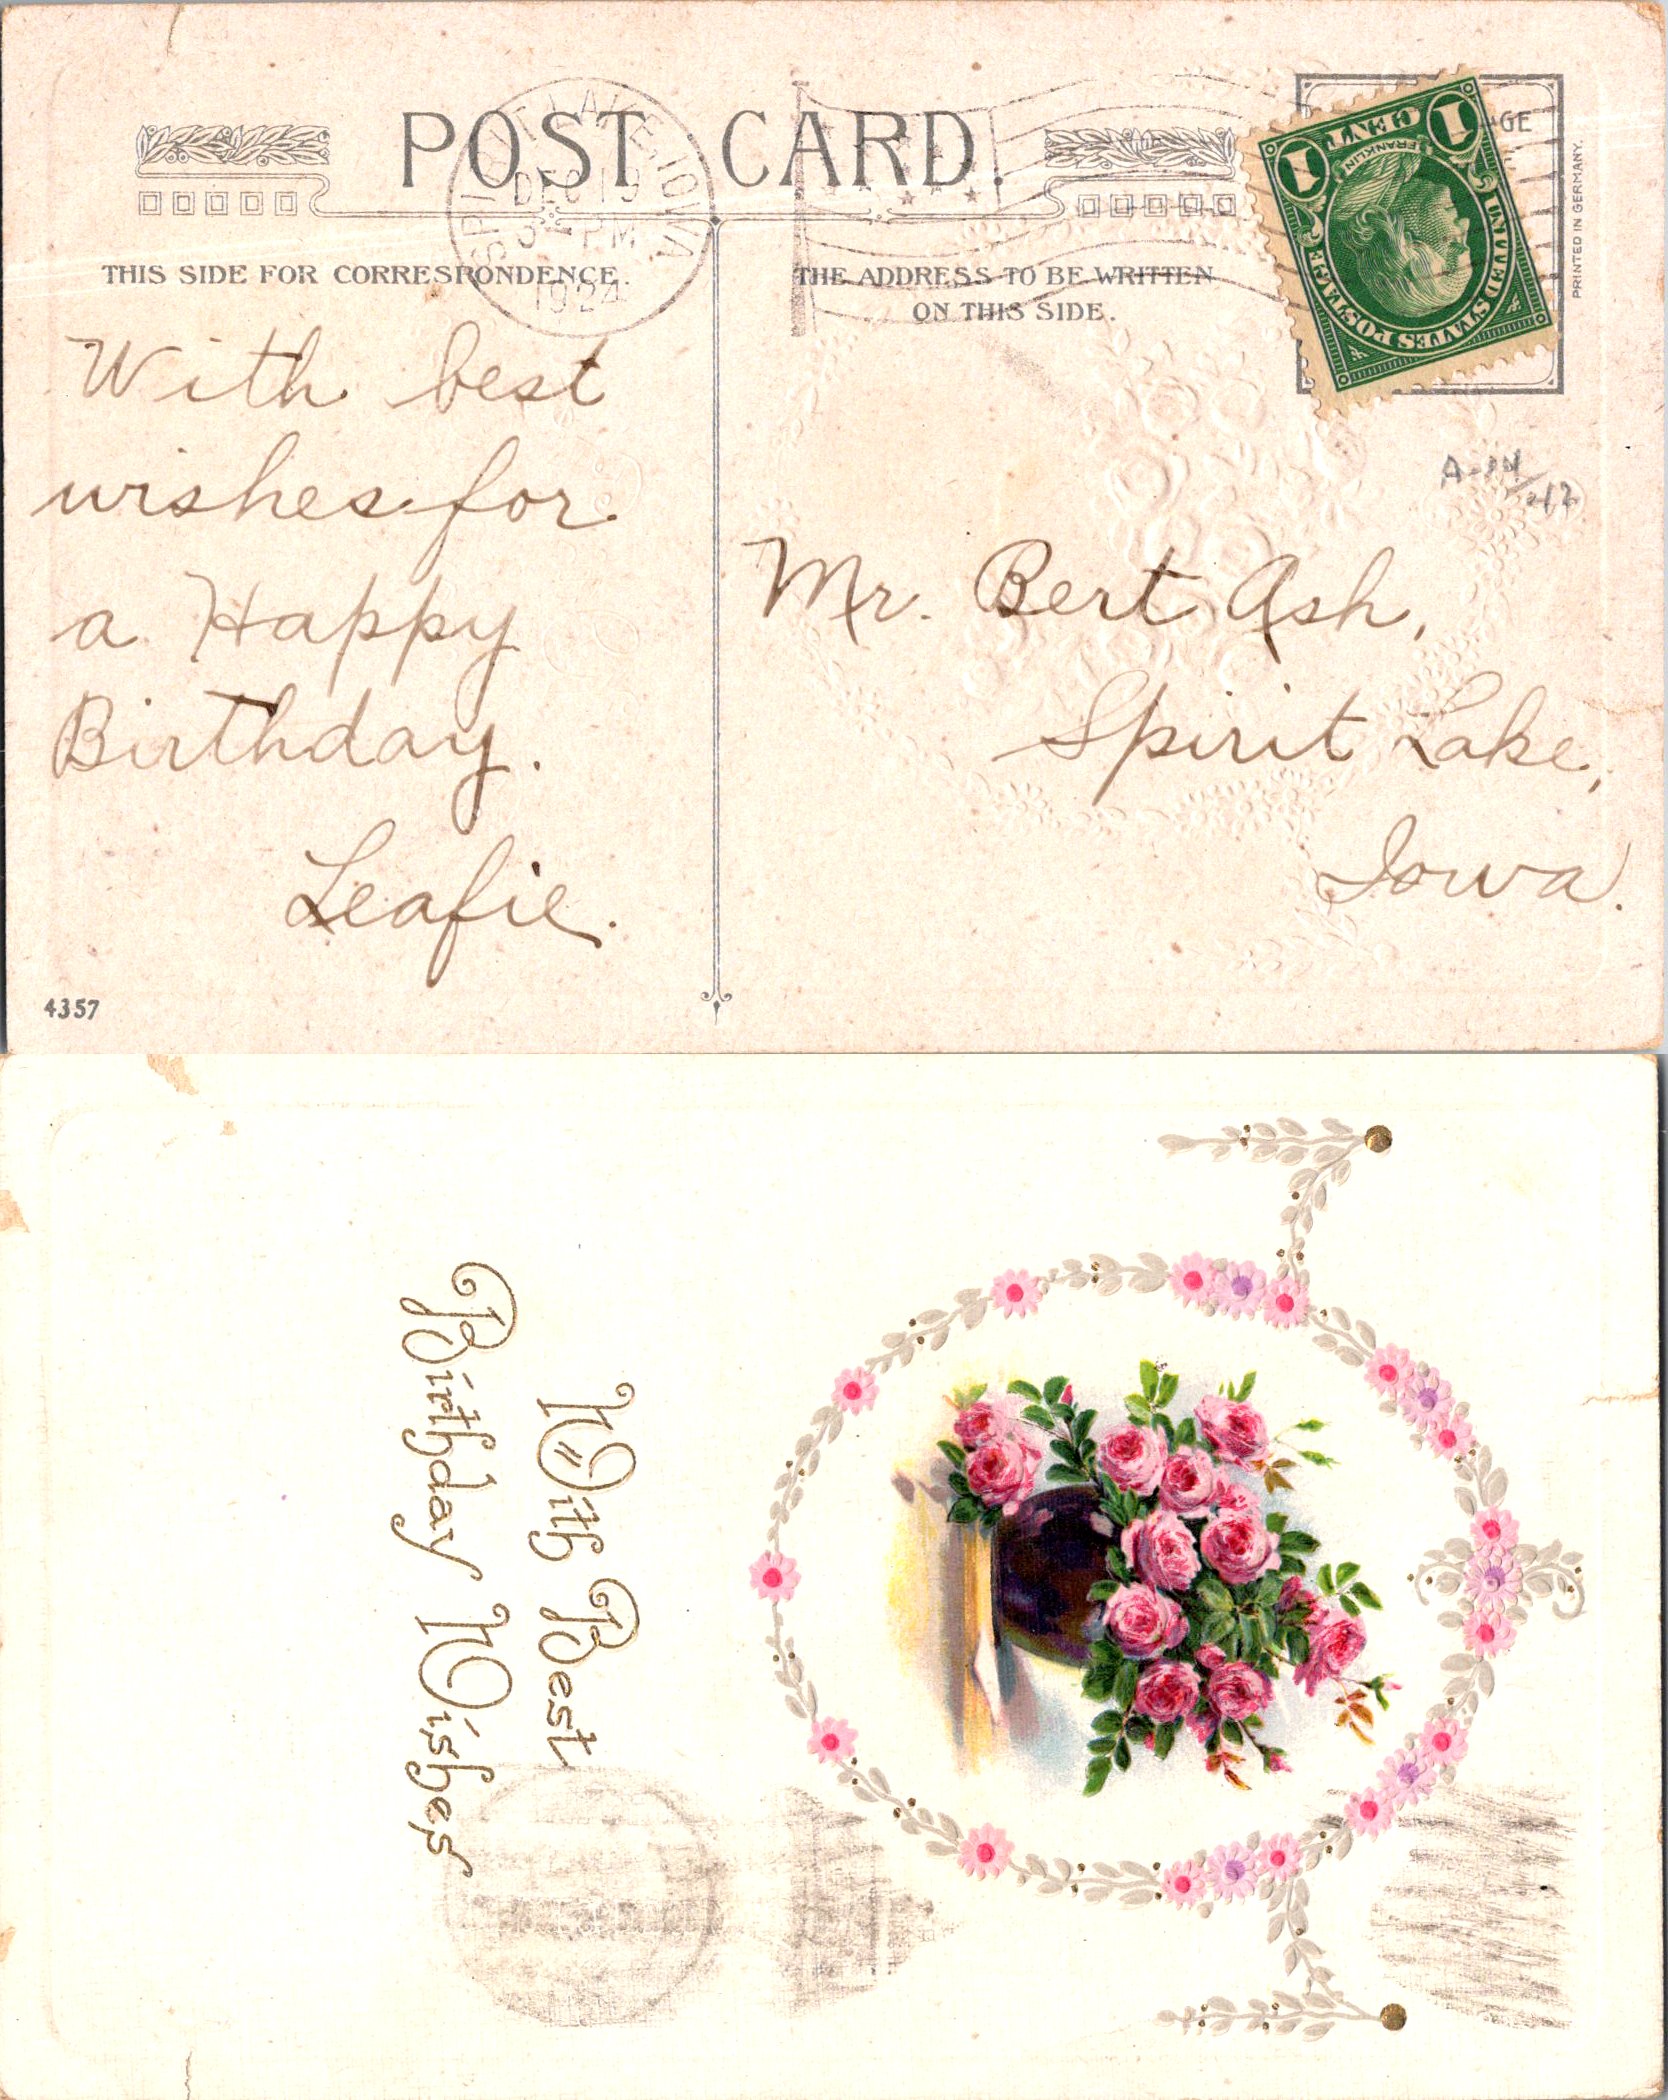 POST CARD.
SPIRIT LAKE, IOWA
DEC 19
PM
1924
1 CENT 1
FRANKLIN
UNITED STATES POSTAGE
GE
PRINTED IN GERMANY.
THIS SIDE FOR CORRESPONDENCE.
THE ADDRESS TO BE WRITTEN
ON THIS SIDE.
With best
wishes for
a Happy
Birthday.
Leafie.
Mr. Bert Ash,
Spirit Lake,
Iowa.
4357
With Best
Birthday Wishes